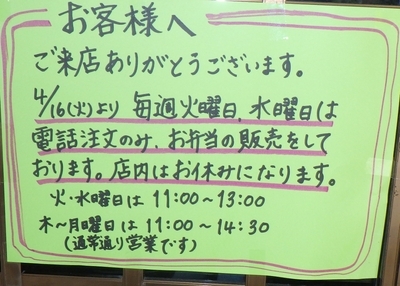 お客様へ
ご来店ありがとうございます。
4/16(火)より 毎週火曜日、水曜日は
電話注文のみ、お弁当の販売をして
おります。店内はお休みになります。
火・水曜日は 11:00～13:00
木～月曜日は 11:00～14:30
(通常通り営業です)